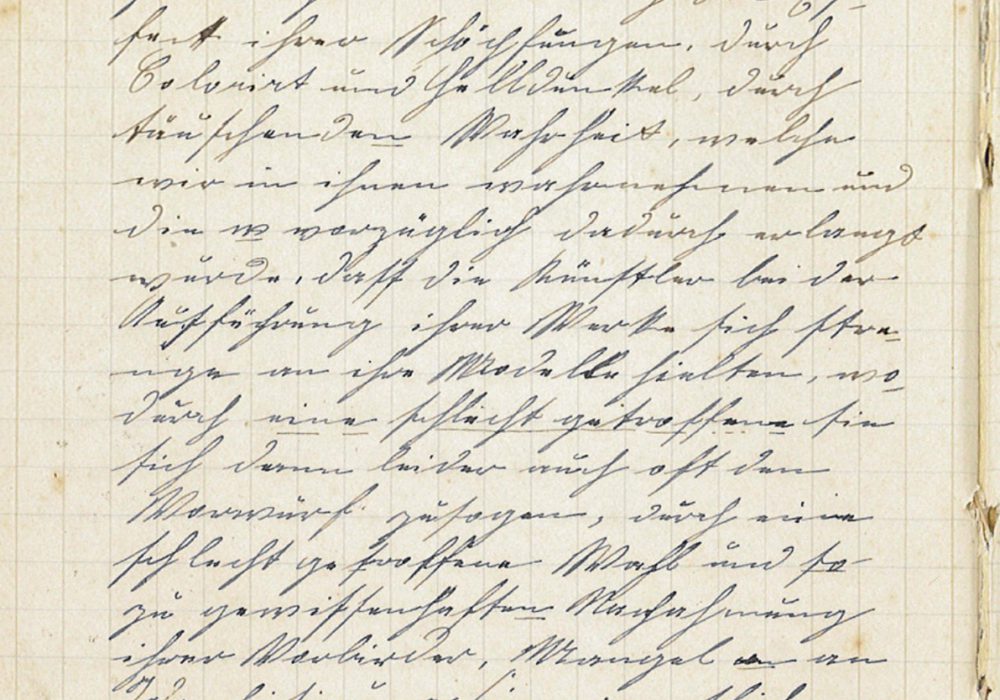 keit ihrer Schöpfungen, durch
Colorirt und Helldunkel, durch
täuschenden Wahrheit, welche
wir in ihnen wahrnehmen und
die w vorzüglich dadurch erlangt
wurde, daß die Künstler bei der
Ausführung ihrer Werke sich stre-
nge an ihre Modelle hielten, wo-
durch eine schlecht getroffene sie
sich denn leider auch oft den
Vorwurf zuzogen, durch eine
schlecht getroffene Wahl und so
zu gewissenhaften Nachahmung
ihrer Vorbilder, Mangel an an